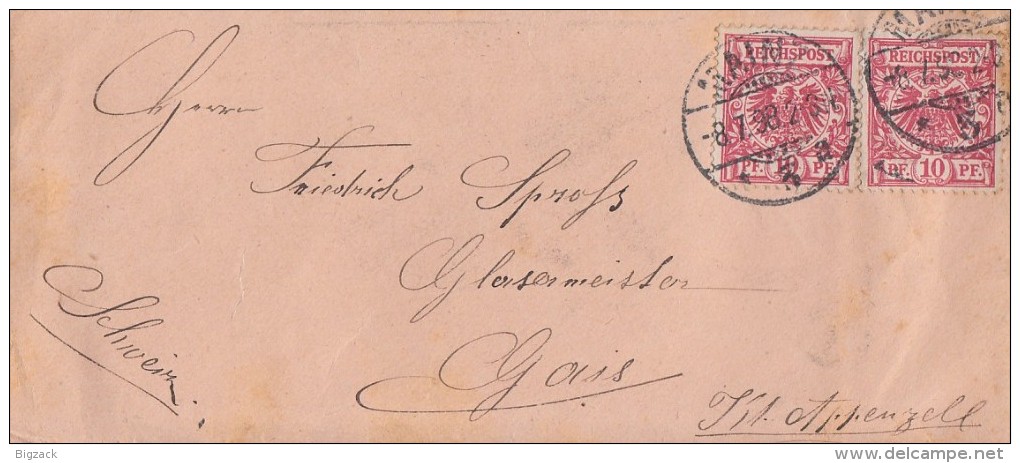 Herrn
Friedrich Spross
Glasermeister
Gais
Kt. Appenzell
Schweiz.
REICHSPOST
10 PF.
REICHSPOST
PF. 10 PF.
-8.7.98.
Bigzack
www.delcampe.net